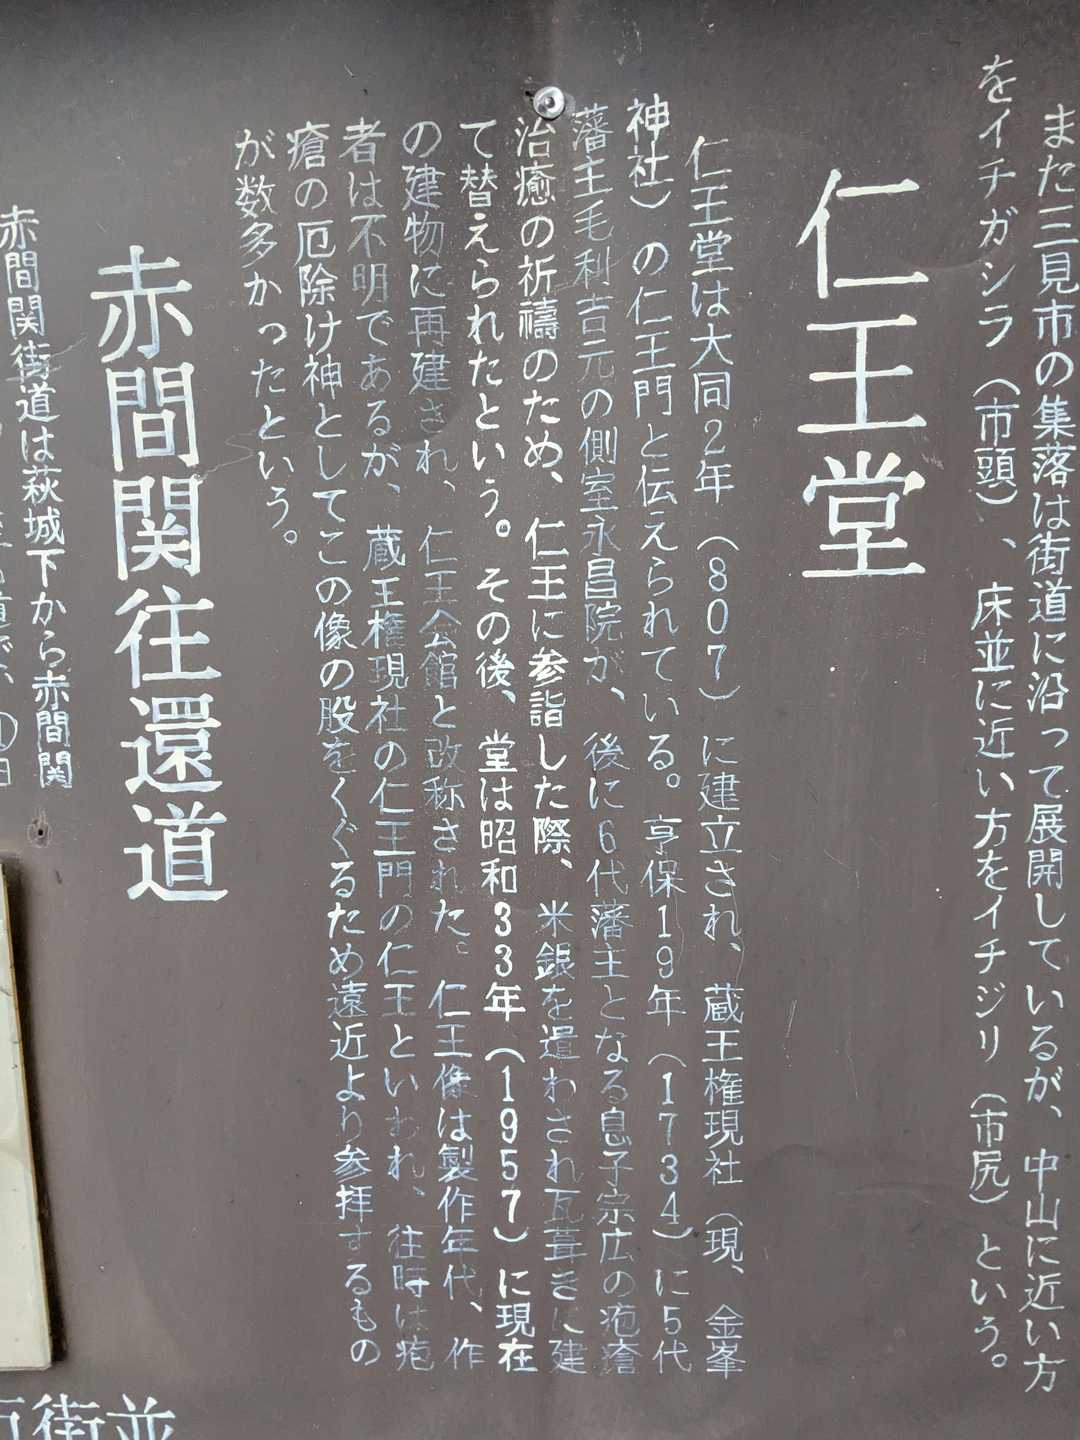 また三見市の集落は街道に沿って展開しているが、中山に近い方
をイチガシラ（市頭）、床並に近い方をイチジリ（市尻）という。
仁王堂
仁王堂は大同2年（807）に建立され、蔵王権現社（現、金峯
神社）の仁王門と伝えられている。享保19年（1734）に5代
藩主毛利吉元の側室永昌院が、後に6代藩主となる息子宗広の疱瘡
治癒の祈禱のため、仁王に参詣した際、米銀を遣わされ瓦葺きに建
て替えられたという。その後、堂は昭和33年（1957）に現在
の建物に再建され、仁王会館と改称された。仁王像は製作年代、作
者は不明であるが、蔵王権現社の仁王門の仁王といわれ、往時は疱
瘡の厄除け神としてこの像の股をくぐるため遠近より参拝するもの
が数多かったという。
赤間関往還道
赤間関街道は萩城下から赤間関
街並